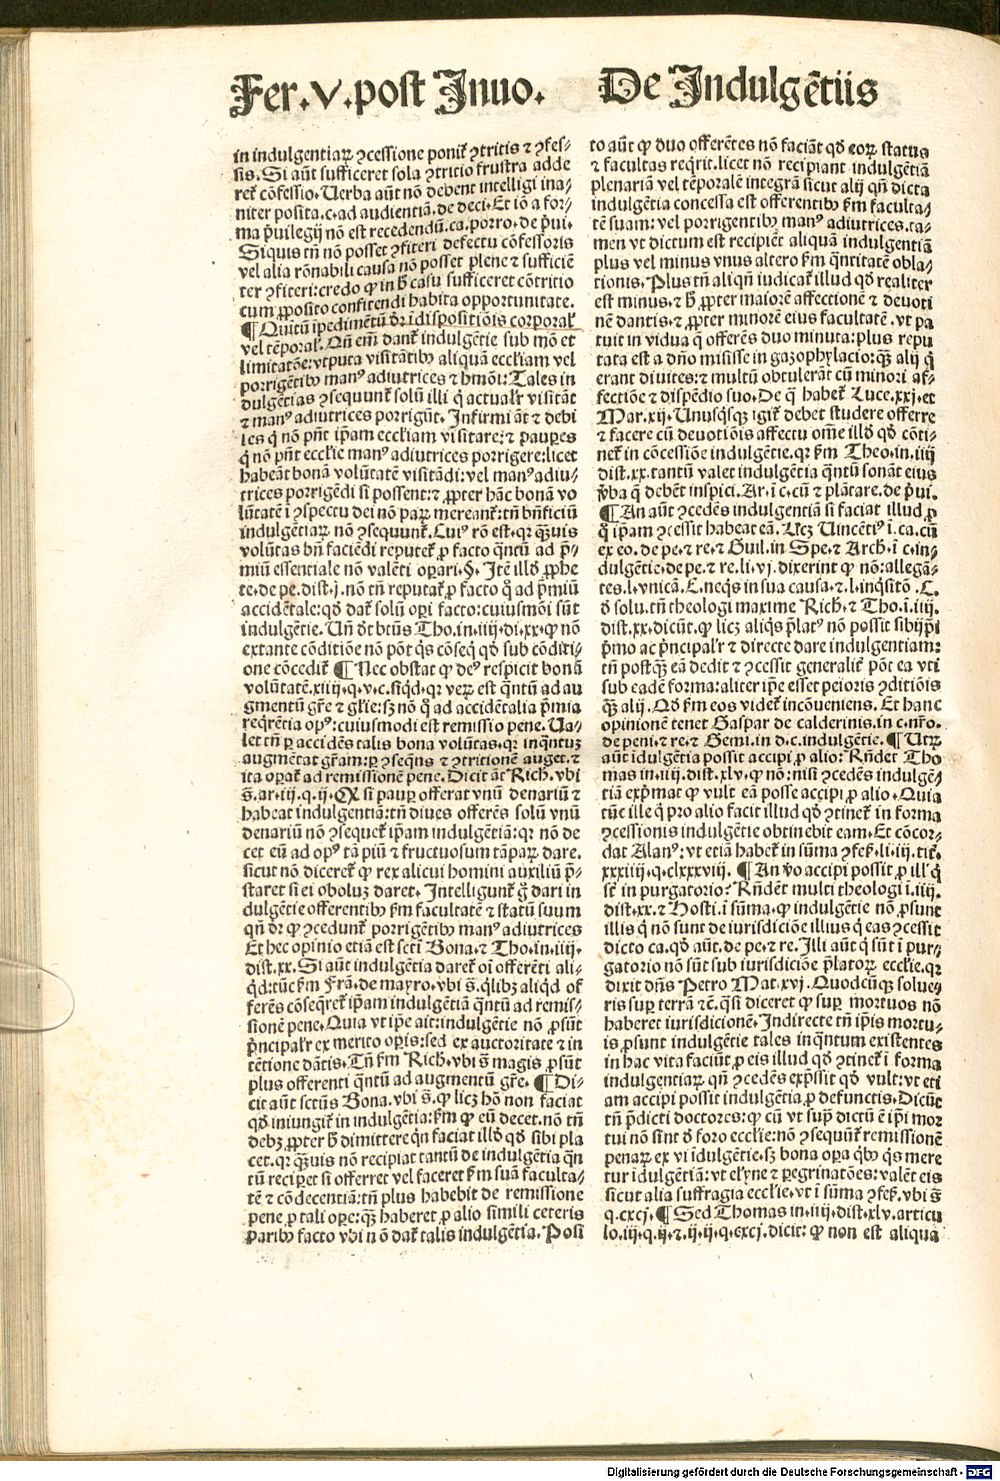 Fer.v.post Inuo. De Indulgẽtiis
in indulgentiaꝝ ꝯcessione poniť ꝯtritis ⁊ ꝯfes-
sis. Si aũt sufficeret sola ꝯtritio frustra adde
reť cõfessio. Uerba aũt nõ debent intelligi ina-
niter posita.c.ad audientiã.de deci. Et iõ a for-
ma p̃uilegij nõ est recedendũ.ca.porro.de p̃ui.
Siquis tñ nõ posset ꝯfiteri defectu cõfessoris
vel alia rõnabili causa nõ posset plene ⁊ sufficiẽ
ter ꝯfiteri:credo ꝙ in h̃ casu sufficeret cõtritio
cum ꝓposito confitendi habita opportunitate.
¶ Quĩtũ ĩpedimẽtũ dr̃ ĩdispositiõis corporal̃
vel tẽporal̃. Qñ em̃ danť indulgẽtie sub mõ et
limitatõe:vtputa visitãtibꝰ aliquã eccl̃iam vel
porrigẽtibꝰ manꝰ adiutrices ⁊ hmõi: Tales in
dulgẽtias ꝯsequunť solũ illi q̃ actual̃r visitãt
⁊ manꝰ adiutrices porrigũt. Infirmi ãt ⁊ debi
les q̃ nõ pñt ip̃am eccl̃iam visitare:⁊ pauꝑes
q̃ nõ pñt eccl̃ie manꝰ adiutrices porrigere:licet
habeãt bonã volũtatẽ visitãdi:vel manꝰ adiu-
trices porrigẽdi si possent:⁊ ꝓpter hãc bonã vo
lũtatẽ ĩ ꝯspectu dei nõ paꝝ mereanť:tñ bñficiũ
indulgẽtiaꝝ nõ ꝯsequunť. Cuiꝰ rõ est.qꝛ q̃uis
volũtas bñ faciẽdi reputeť ꝓ facto q̃ntũ ad p̃-
miũ essentiale nõ valẽti oꝑari.§. Itẽ illđ ꝓphe
te.de pe.dist.j.nõ tñ reputať ꝓ facto q̃ ad p̃miũ
accidẽtale:qđ dať solũ oꝑi facto:cuiusmõi sũt
indulgẽtie. Uñ dt̃ btũs Tho.in.iiij.di.xx.ꝙ nõ
extante cõditiõe nõ põt q̃s cõseq̃ qđ sub cõditi-
one cõcediť ¶ Nec obstat ꝙ deꝰ respicit bonã
volũtatẽ.xiiij.q.v.c.siq̃d.qꝛ veꝝ est q̃ntũ ad au
gmentũ gr̃e ⁊ gl̃ie:sꝫ nõ q̃ ad accidẽtalia p̃mia
reqrẽtia opꝰ:cuiusmodi est remissio pene. Ua-
let tñ ꝑ accidẽs talis bona volũtas.qꝛ inq̃ntuꝫ
augmẽtat gr̃am:ꝑ ꝯseqñs ⁊ ꝯtritionẽ auget.⁊
ita oꝑať ad remissionẽ pene. Dicit ãt Rich.vbi
s̃.ar.iij.q.ij. Qꝙ si pauꝑ offerat vnũ denariũ ⁊
habeat indulgentiã:tñ diues offerẽs solũ vnũ
denariũ nõ ꝯsequeť ip̃am indulgẽtiã:qꝛ nõ de
cet eũ ad opꝰ tã piũ ⁊ fructuosum tã paꝝ dare.
sicut nõ dicereť ꝙ rex alicui homini auxiliũ p̃-
staret si ei oboluꝫ daret. Intelligunť g̃ dari in
dulgẽtie offerentibꝰ fm̃ facultatẽ ⁊ statũ suum
qñ dr̃ ꝙ ꝯcedunť porrigẽtibꝰ manꝰ adiutrices
Et hec opinio etiã est scti Bona.⁊ Tho.in.iiij.
dist.xx. Si aũt indulgẽtia dareť oĩ offerẽti ali-
q̃d:tũc fm̃ Frã.de mayro.vbi s̃.q̃libꝫ aliqd of
ferẽs cõseq̃reť ip̃am indulgẽtiã q̃ntũ ad remis-
sionẽ pene. Quia vt ip̃e ait:indulgẽtie nõ ꝓsũt
p̃ncipal̃r ex merito oꝑis:sed ex auctoritate ⁊ in
tẽtione dãtis. Tñ fm̃ Rich.vbi s̃ magis ꝓsũt
plus offerenti q̃ntũ ad augmentũ gr̃e. ¶ Di-
cit aũt sctũs Bona.vbi s̃.ꝙ licꝫ hõ non faciat
qđ iniungiť in indulgẽtia:fm̃ ꝙ eũ decet.nõ tñ
debꝫ ꝓpter h̃ dimittere q̃n faciat illđ qđ sibi pla
cet.qꝛ q̃uis nõ recipiat tantũ de indulgẽtia q̃n
tũ reciꝑet si offerret vel faceret fm̃ suã faculta-
tẽ ⁊ cõdecentiã:tñ plus habebit de remissione
pene ꝓ tali oꝑe:q̃ꝫ haberet ꝓ alio simili ceteris
paribꝰ facto vbi nõ dať talis indulgẽtia. Posi
to aũt ꝙ duo offerẽtes nõ faciãt qđ eoꝝ status
⁊ facultas reqrit.licet nõ recipiant indulgẽtiã
plenariã vel tẽporalẽ integrã sicut alij qñ dicta
indulgẽtia concessa est offerentibꝰ fm̃ faculta-
tẽ suam: vel porrigentibꝰ manꝰ adiutrices.ta-
men vt dictum est recipiẽt aliquã indulgentiã
plus vel minus vnus altero fm̃ q̃ntitatẽ obla-
tionis. Plus tñ aliqñ iudicať illud qđ realiter
est minus.⁊ h̃ ꝓpter maiorẽ affectionẽ ⁊ deuoti
nẽ dantis.⁊ ꝓpter minorẽ eius facultatẽ.vt pa
tuit in vidua q̃ offerẽs duo minuta:plus repu
tata est a dño misisse in gazophylacio:q̃ꝫ alij q̃
erant diuites:⁊ multũ obtulerãt cũ minori af-
fectiõe ⁊ dispẽdio suo. De q̃ habeť Luce.xxj.et
Mar.xij. Unusq̃sqꝫ igiť debet studere offerre
⁊ facere cũ deuotiõis affectu om̃e illđ qđ cõti-
neť in cõcessiõe indulgẽtie.qꝛ fm̃ Theo.in.iiij
dist.xx.tantũ valet indulgẽtia q̃ntũ sonãt eius
v̉ba q̃ debẽt inspici. Ar.ĩ c.cũ ⁊ plãtare.de p̃ui.
¶ An aũt ꝯcedẽs indulgẽtiã si faciat illud ꝓ
q̃ ip̃am ꝯcessit habeat eã. Lꝫ Uincẽtiꝰ ĩ.ca.cũ
ex eo.de pe.⁊ re.⁊ Guil.in Spe.⁊ Arch.ĩ c.in-
dulgẽtie.de pe.⁊ re.li.vj.dixerint ꝙ nõ:allegã-
tes.l.vnicã. C. neq̃s in sua causa.⁊.l.inq̃sitõ. C.
đ solu.tñ theologi maxime Rich.⁊ Tho.ĩ.iiij.
dist.xx.dicũt.ꝙ licꝫ aliq̃s p̃latꝰ nõ possit sibijp̃i
p̃mo ac p̃ncipal̃r ⁊ directe dare indulgentiam:
tñ postq̃ꝫ eã dedit ⁊ ꝯcessit generaliť põt ea vti
sub eadẽ forma:aliter ip̃e esset peioris ꝯditiõis
q̃ꝫ alij. Qđ fm̃ eos videť incõueniens. Et hanc
opinionẽ tenet Gaspar de calderinis.in c.nr̃o.
de peni.⁊ re.⁊ Gemi.in d.c.indulgẽtie. ¶ Utꝝ
aũt ĩdulgẽtia possit accipi ꝓ alio: Rñdet Tho
mas in.iiij.dist.xlv.ꝙ nõ:nisi ꝯcedẽs indulgẽ-
tiã exp̃mat ꝙ vult eã posse accipi ꝓ alio. Quia
tũc ille q̃ pro alio facit illud qđ ꝯtineť in forma
ꝯcessionis indulgẽtie obtinebit eam. Et cõcor-
dat Alanꝰ: vt etiã habeť in sũma ꝯfeß.li.iij.tiť.
xxxiiij.q.clxxxviij. ¶ An v̉o accipi possit ꝓ ill' q̃
sĩ in purgatorio? Rñdẽt multi theologi ĩ.iiij.
dist.xx.⁊ Hosti.ĩ sũma.ꝙ indulgẽtie nõ ꝓsunt
illis q̃ nõ sunt de iurisdiciõe illius q̃ eas ꝯcessit
dicto ca.qđ aũt.de pe.⁊ re. Illi aũt q̃ sũt ĩ pur-
gatorio nõ sũt sub iurisdiciõe p̃latoꝝ eccl̃ie.qꝛ
dixit dñs Petro Mat.xvj. Quodcũqꝫ solue-
ris suꝑ terrã ⁊c̃.q̃si diceret ꝙ suꝑ mortuos nõ
haberet iurisdicionẽ. Indirecte tñ ip̃is mortu-
is ꝓsunt indulgẽtie tales inq̃ntum existentes
in hac vita faciũt ꝓ eis illud qđ ꝯtineť ĩ forma
indulgentiaꝝ qñ ꝯcedẽs exp̃ssit qđ vult:vt eti
am accipi possit indulgẽtia ꝓ defunctis. Dicũt
tñ p̃dicti doctores:ꝙ cũ vt sup̃ dictũ ẽ ip̃i mor
tui nõ sint đ foro eccl̃ie:nõ ꝯsequũť remissionẽ
penaꝝ ex vi ĩdulgẽtie.sꝫ bona oꝑa q̃bꝰ q̃s mere
tur ĩdulgẽtiã:vt elyñe ⁊ ꝑegrinatões:valẽt eis
sicut alia suffragia eccl̃ie.vt ĩ sũma ꝯfeß.vbi s̃
q.cxcj. ¶ Sed Thomas in.iiij.dist.xlv.articu
lo.iij.q.ij.⁊.ij.ij.q.cxcj.dicit: ꝙ non est aliqua
Digitalisierung gefördert durch die Deutsche Forschungsgemeinschaft - DFG